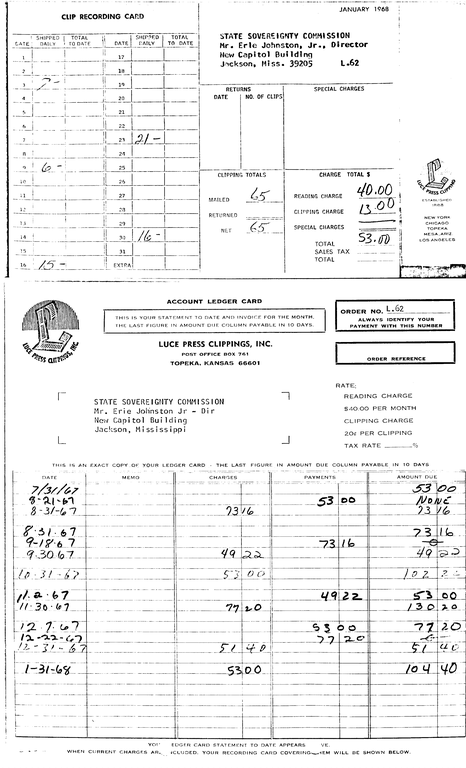 JANUARY 1968
CLIP RECORDING CARD
STATE SOVEREIGNTY COMMISSION
Mr. Erle Johnston, Jr., Director
New Capitol Building
Jackson, Miss. 39205 L.62
DATE SHIPPED DAILY TOTAL TO DATE DATE SHIPPED DAILY TOTAL TO DATE
1 17
2 18
3 7- 19
4 20
5 21
6 22
7 23 21-
8 24
9 6- 25
10 26
11 27
12 28
13 29
14 30 16-
15 31
16 15- EXTRA
RETURNS
DATE NO. OF CLIPS
SPECIAL CHARGES
CLIPPING TOTALS
MAILED 65
RETURNED
NET 65
CHARGE TOTAL $
READING CHARGE 40.00
CLIPPING CHARGE 13.00
SPECIAL CHARGES
TOTAL 53.00
SALES TAX
TOTAL
LUCE PRESS CLIPPINGS
ESTABLISHED
1888
NEW YORK
CHICAGO
TOPEKA
MESA, ARIZ
LOS ANGELES
LUCE PRESS CLIPPINGS, INC.
ACCOUNT LEDGER CARD
THIS IS YOUR STATEMENT TO DATE AND INVOICE FOR THE MONTH.
THE LAST FIGURE IN AMOUNT DUE COLUMN PAYABLE IN 10 DAYS.
LUCE PRESS CLIPPINGS, INC.
POST OFFICE BOX 741
TOPEKA, KANSAS 66601
ORDER NO. L.62
ALWAYS IDENTIFY YOUR
PAYMENT WITH THIS NUMBER
ORDER REFERENCE
STATE SOVEREIGNTY COMMISSION
Mr. Erle Johnston Jr - Dir
New Capitol Building
Jackson, Mississippi
RATE:
READING CHARGE
$40.00 PER MONTH
CLIPPING CHARGE
20¢ PER CLIPPING
TAX RATE %
THIS IS AN EXACT COPY OF YOUR LEDGER CARD - THE LAST FIGURE IN AMOUNT DUE COLUMN PAYABLE IN 10 DAYS
DATE MEMO CHARGES PAYMENTS AMOUNT DUE
7/31/67 53 00
8-21-67 53 00 NONE
8-31-67 73 16 73 16
8.31.67 73 16
9-18.67 73 16 -0-
9.30 67 49 22 49 22
10-31-67 53 00 102 22
11.2.67 49 22 53 00
11-30-67 77 20 130 20
12 7.67 53 00 77 20
12-22-67 77 20 -0-
12-31-67 51 40 51 40
1-31-68 53 00 104 40
EDGER CARD STATEMENT TO DATE APPEARS
WHEN CURRENT CHARGES ICLUDED. YOUR RECORDING CARD COVERING EM WILL BE SHOWN BELOW.